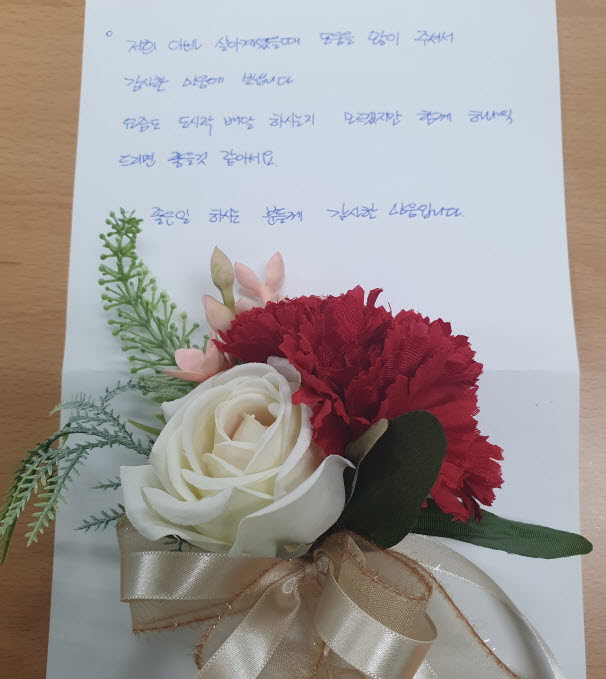 저희 어머니 살아계셨을때 도움을 많이 주셔서
감사한 마음에 보냅니다
요즘도 도시락 배달 하시는지 모르겠지만 함께 하나씩
드리면 좋을것 같아서요.
좋은일 하시는 분들께 감사한 마음입니다.